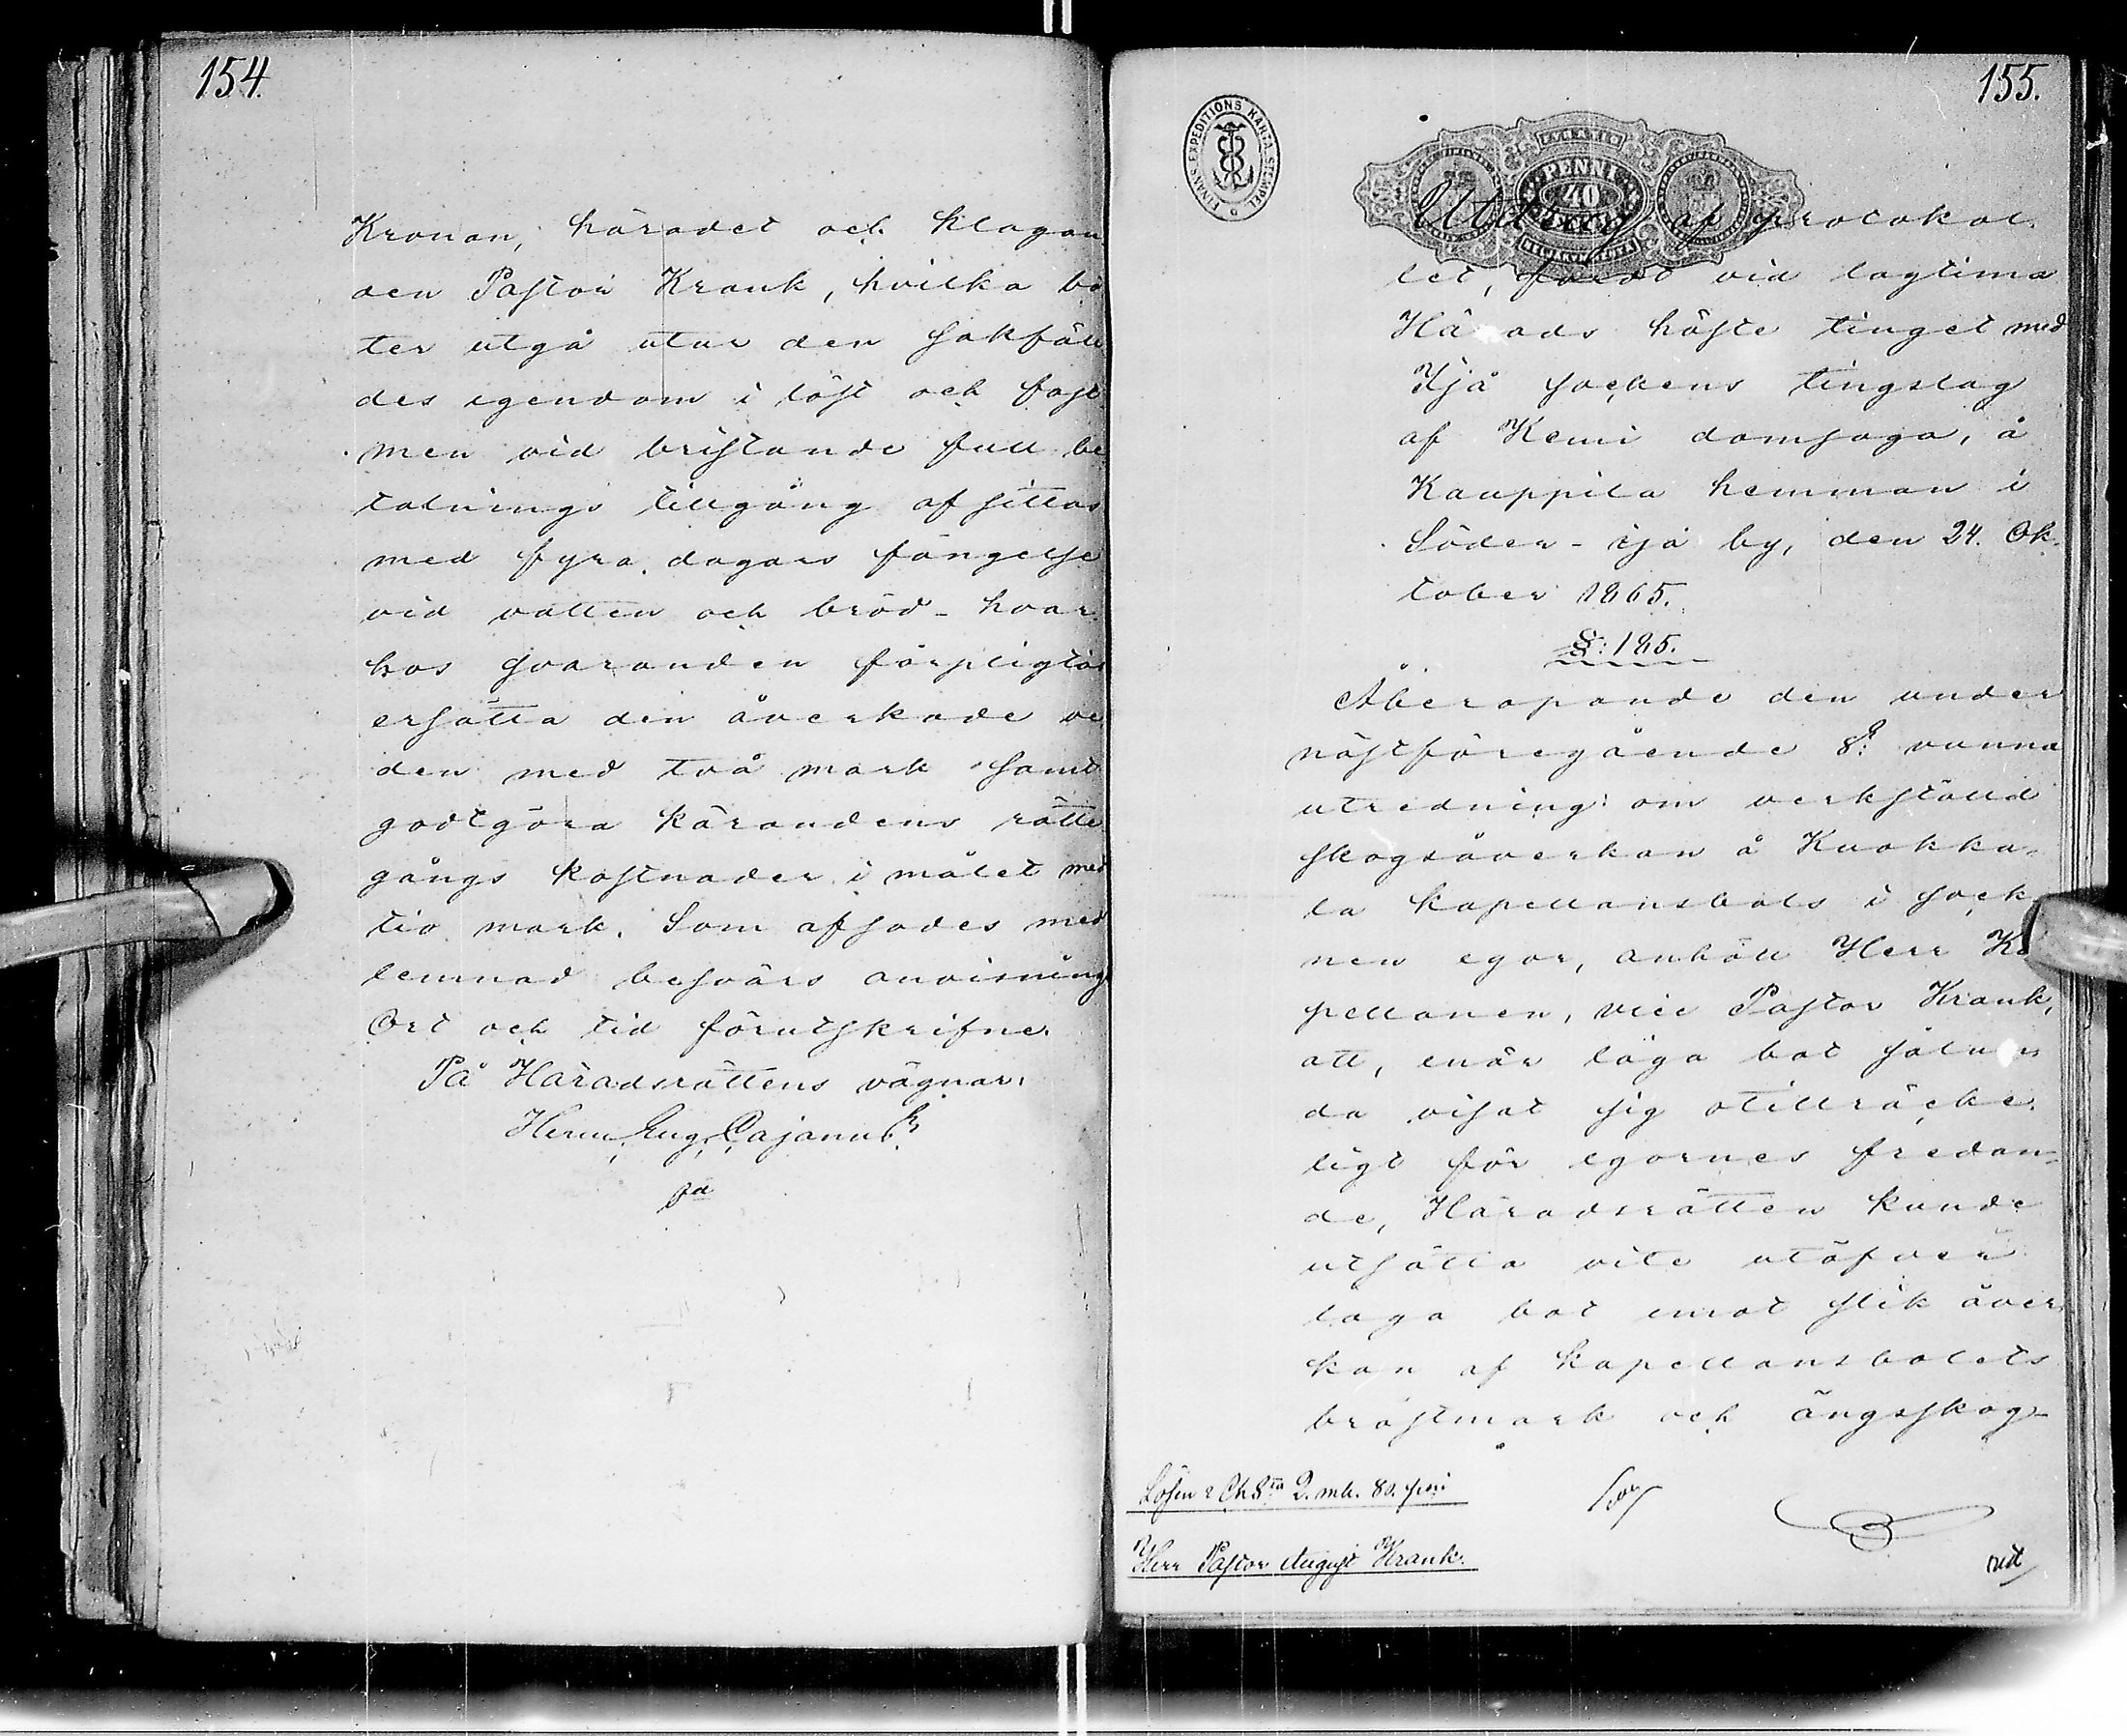 154.
Kronan, häradet och klagan
den Pastor Krank, hvilka bö
ter utgå utur den sakfäll
des egendom i löst och fast
men vid bristande full be
talnings tillgång afsittas
med fyra dagars fängelse
vid vatten och bröd - hvar
hos svaranden förpligtas
ersätta den åverkade ve
den med två mark samt
godtgöra kärandens rätte
gångs kostnader i målet med
tio mark. Som afsades med
lemnad besvärs anvisning
Ort och tid förutskrifne.
På Häradsrättens vägnar:
Herm. Eug. Cajanus
155.
FINANS EXPEDITIONS KARTA STEMPEL
PENNI
40
Utdrag af protokol
let, fördt vid lagtima
Härads höste tinget med
Ijå sockens tingslag
af Kemi domsaga, å
Kauppila hemman i
Söder-ijå by, den 24. Ok
tober 1865.
§: 185.
Åberopande den under
nästföregående §: vunna
utredning om verkställd
skogsåverkan å Kuokka-
la kapellansbols i sock
nen egor, anhöll Herr Ka
pellanen, vice Pastor Krank,
att, enär laga bot sålun
da visat sig otillräcke
ligt för egornes fredan-
de, Häradsrätten kunde
utsätta vite utöfver
laga bot emot slik åver
kan af kapellansbolets
bröstmark och ängsskog-
Lösen & Ch Sta 2. mk. 80. peni
Herr Pastor August Krank.